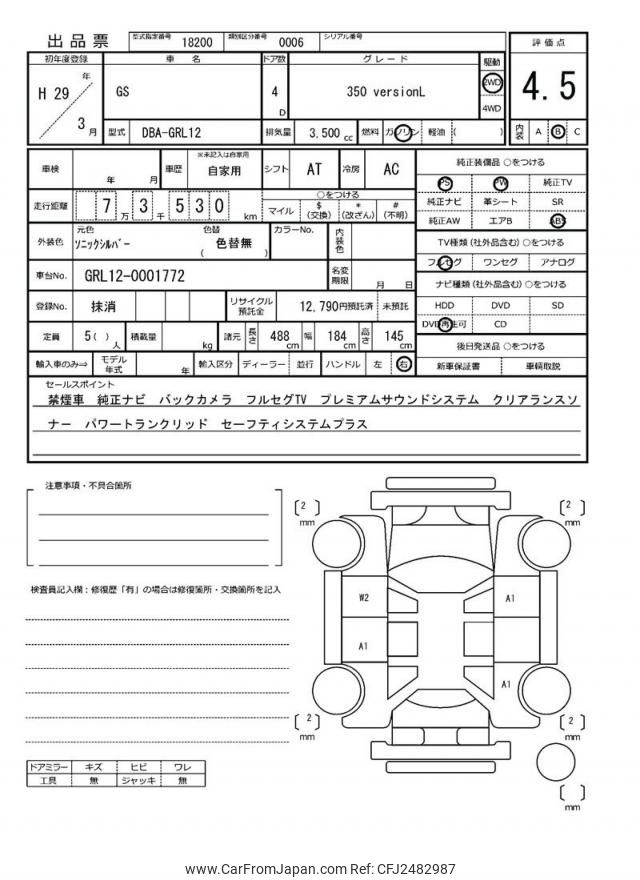 出品票
型式指定番号 18200 類別区分番号 0006 シリアル番号
初年度登録 車名 ドア数 グレード 駆動 評価点
H 29 年 3 月
GS 4 D 350 versionL 2WD 4WD 4.5
型式 DBA-GRL12 排気量 3,500 cc 燃料 ガソリン 軽油 ( ) 内装 A B C
車検 年 月 車歴 ※未記入は自家用 自家用 シフト AT 冷房 AC
走行距離 7 万 3 千 5 3 0 km ○をつける マイル $ (交換) * (改ざん) # (不明)
外装色 元色 ソニックシルバー 色替 ( 色替無 ) カラーNo. 内装色
車台No. GRL12-0001772 名変期限 月 日
登録No. 抹消 リサイクル預託金 12,790円預託済 未預託
定員 5( )人 積載量 kg 諸元 長さ 488cm 幅 184cm 高さ 145cm
輸入車のみ⇒ モデル年式 年 輸入区分 ディーラー 並行 ハンドル 左 右
純正装備品 ○をつける
PS PW 純正TV
純正ナビ 革シート SR
純正AW エアB ABS
TV種類(社外品含む)○をつける
フルセグ ワンセグ アナログ
ナビ種類(社外品含む)○をつける
HDD DVD SD
DVD再生可 CD
後日発送品 ○をつける
新車保証書 車輌取説
セールスポイント
禁煙車 純正ナビ バックカメラ フルセグTV プレミアムサウンドシステム クリアランスソ
ナー パワートランクリッド セーフティシステムプラス
注意事項・不具合箇所
検査員記入欄:修復歴「有」の場合は修復箇所・交換箇所を記入
ドアミラー キズ ヒビ ワレ
工具 無 ジャッキ 無
2 mm 2 mm
W2 A1
A1
A1
2 mm 2 mm
mm
www.CarFromJapan.com Ref: CFJ2482987